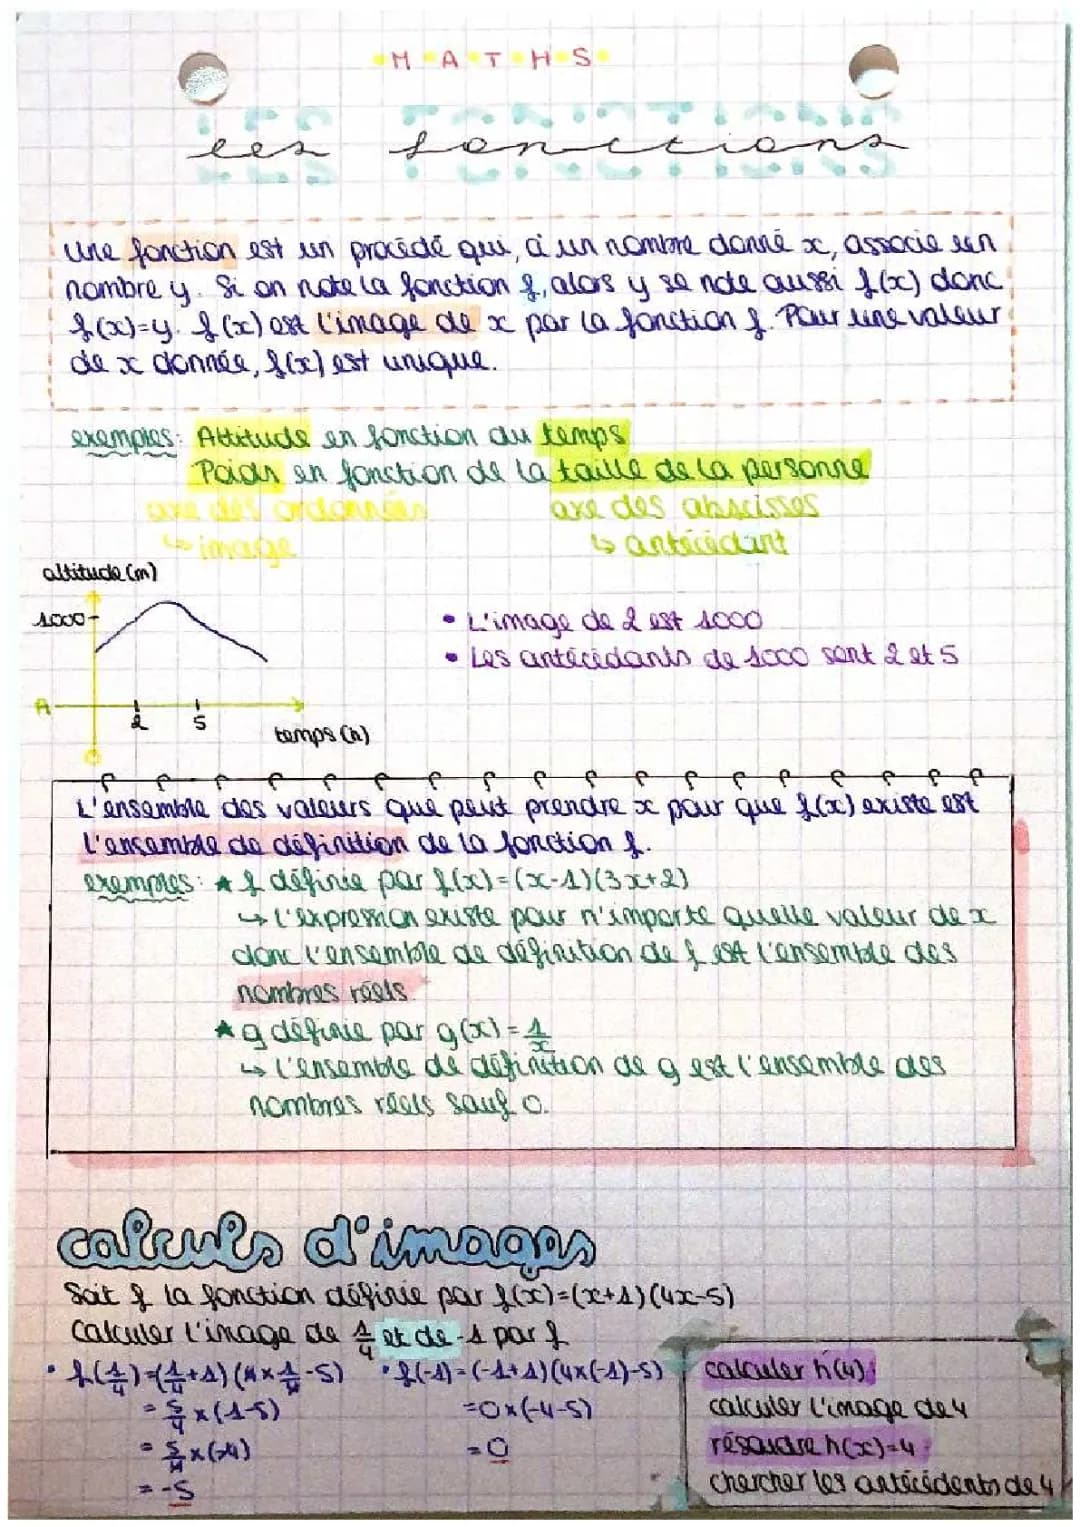 MATHS
LES FONCTIONS
les fonctions
Une fonction est un procédé qui, à un nombre donné x, associe un
nombre y. Si on note la fonction f, alors y se note aussi f(x) donc
f(x)=y. f(x) est l'image de x par la fonction f. Pour une valeur
de x donnée, f(x) est unique.
exemples: Altitude en fonction du temps
Poids en fonction de la taille de la personne
axe des ordonnées axe des abscisses
↳ image ↳ antécédant
altitude (m)
1000
• L'image de 2 est 1000
• Les antécédants de 1000 sont 2 et 5
A
2 5
temps (h)
L'ensemble des valeurs que peut prendre x pour que f(x) existe est
l'ensemble de définition de la fonction f.
exemples: ★ f définie par f(x)=(x-1)(3x+2)
↳ l'expression existe pour n'importe quelle valeur de x
donc l'ensemble de définition de f est l'ensemble des
nombres réels.
★ g définie par g(x)=1/x
↳ l'ensemble de définition de g est l'ensemble des
nombres réels sauf 0.
calculs d'images
Soit f la fonction définie par f(x)=(x+1)(4x-5)
Calculer l'image de 1/4 et de -1 par f
• f(1/4)=(1/4+1)(4×1/4-5) • f(-1)=(-1+1)(4×(-1)-5)
= 5/4 ×(1-5) =0×(-4-5)
= 5/4 ×(-4) =0
= -5
calculer h(4):
calculer l'image de 4
résoudre h(x)=4:
chercher les antécédents de 4